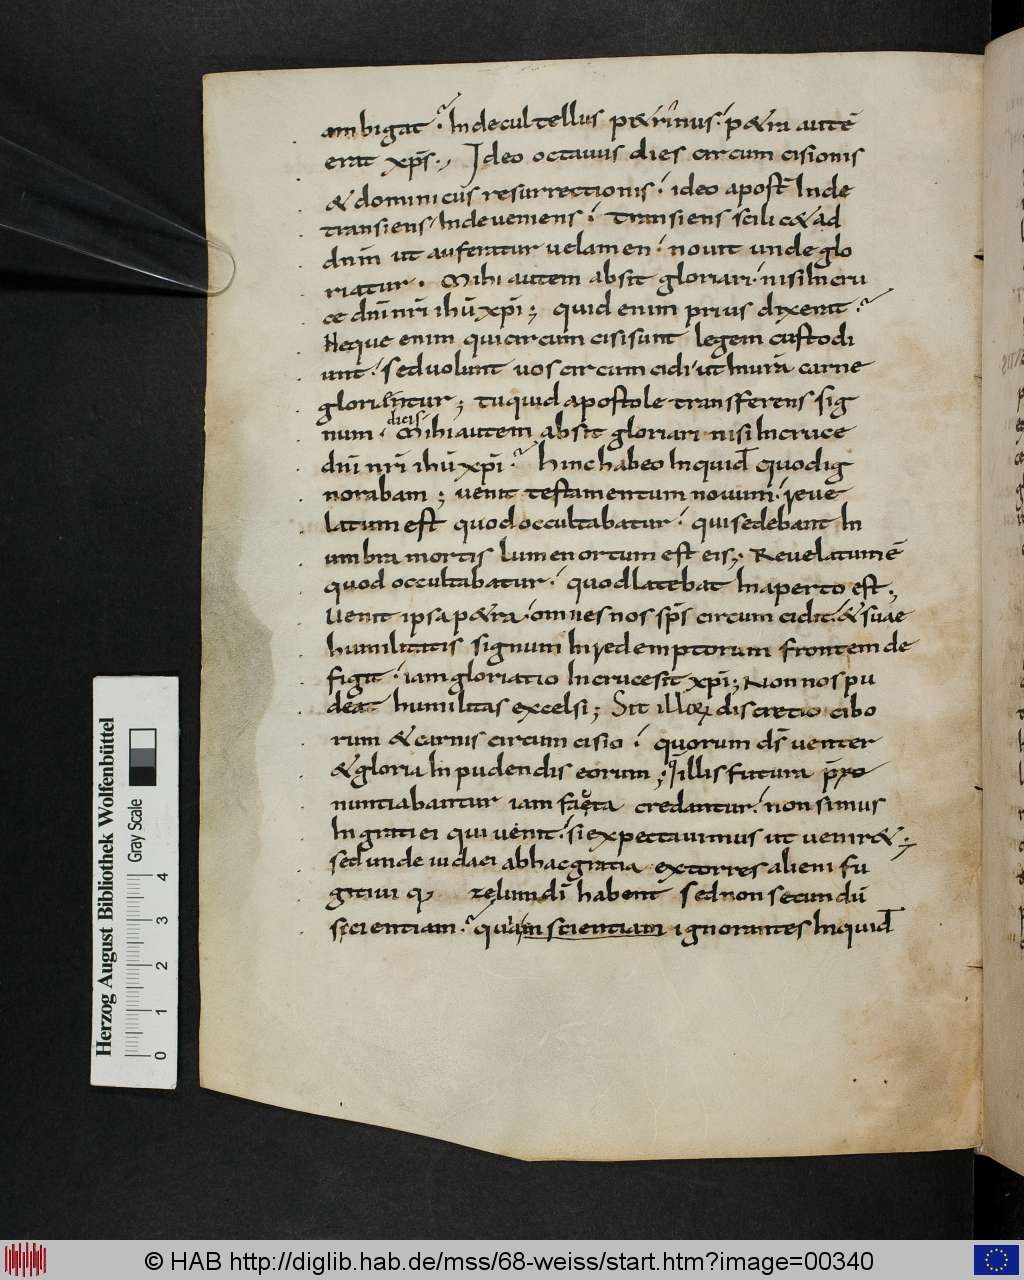 ambigat. Inde cultellus p&rinus. p&ra autē
erat xp̄s., Ideo octavus dies circumcisionis
& dominicus resurrectionis. ideo apost̄ Inde
transiens Inde veniens. transiens scilic& ad
dn̄m ut auferatur velamen. novit unde glo
riatur. Mihi autem absit gloriari. nisi In cru
ce dn̄i nr̄i ihū xp̄i; quid enim prius dixerat.
Neque enim qui circumcisi sunt legem custodi
unt. sed volunt vos circumcidi ut In vr̄a carne
glorientur; tu quid apostole transferens sig
num. dicis Mihi autem absit gloriari nisi In cruce
dn̄i nr̄i ihū xp̄i. hinc habeo Inquid quod ig
norabam; venit testamentum novum. reve
latum est quod occultabatur. qui sedebant In
umbra mortis lumen ortum est eis; Revelatum ē
quod occultabatur. quod latebat In aperto est;
Venit ipsa p&ra. omnes nos sp̄s circumcidit. & suae
humilitatis signum In redemptorum frontem de
figit. iam gloriatio In cruce sit xp̄i; Non nos pu
deat humilitas excelsi; Sit illoꝝ discretio cibo
rum & carnis circumcisio. quorum d̄s venter
& gloria In pudendis eorum; illis futura pro
nuntiabantur iam facta credantur. non simus
Ingrati ei qui venit. si expectavimus ut venir&;
sed unde iudaei ab hac gratia extorres alieni fu
gitivi q; zelum dī habent sed non secundū
scientiam. quam scientiam ignorantes Inquid
Herzog August Bibliothek Wolfenbüttel
Gray Scale
0 1 2 3 4
© HAB http://diglib.hab.de/mss/68-weiss/start.htm?image=00340